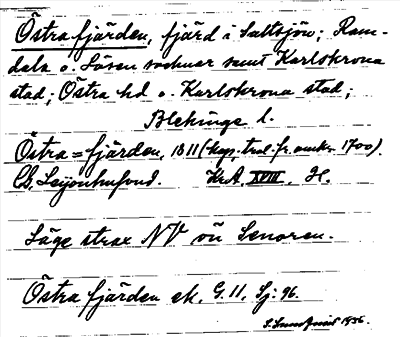 Östra fjärden, fjärd i Saltsjön; Ram-
dala o. Lösen socknar samt Karlskrona
stad; Östra hd o. Karlskrona stad;
Blekinge l.
Östra=fjärden, 1811 (kop, trol. fr. omkr. 1700).
C.G. Leijonhufvud. KrA XVIII. H.
Läge strax NV om Senoren.
Östra fjärden ek. G. 11, Sj: 96.
1936.